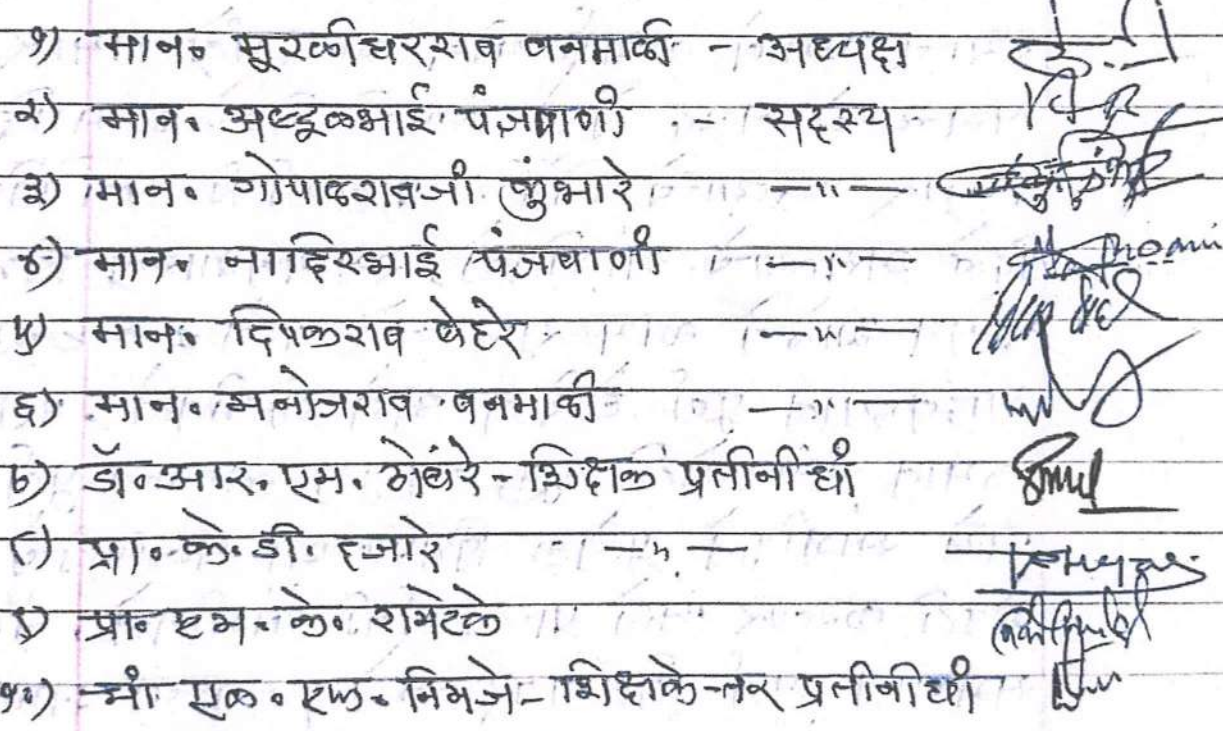 १) मान. मूरळीधरराव वनमाळी - अध्यक्ष
२) मान. अब्दूलभाई पंजवाणी - सदस्य
३) मान. गोपाळरावजी कुंभारे -〃-
४) मान. नादिरभाई पंजवाणी -〃-
५) मान. दिपकराव बेहरे -〃-
६) मान. मनोजराव वनमाळी -〃-
७) डॉ. आर. एम. - शिक्षक प्रतीनीधी
८) प्रा. के. डी. हजारे -〃-
९) प्रा. एम. के. रामटेके
१०) एल. एल. निमजे - शिक्षकेत्तर प्रतीनीधी